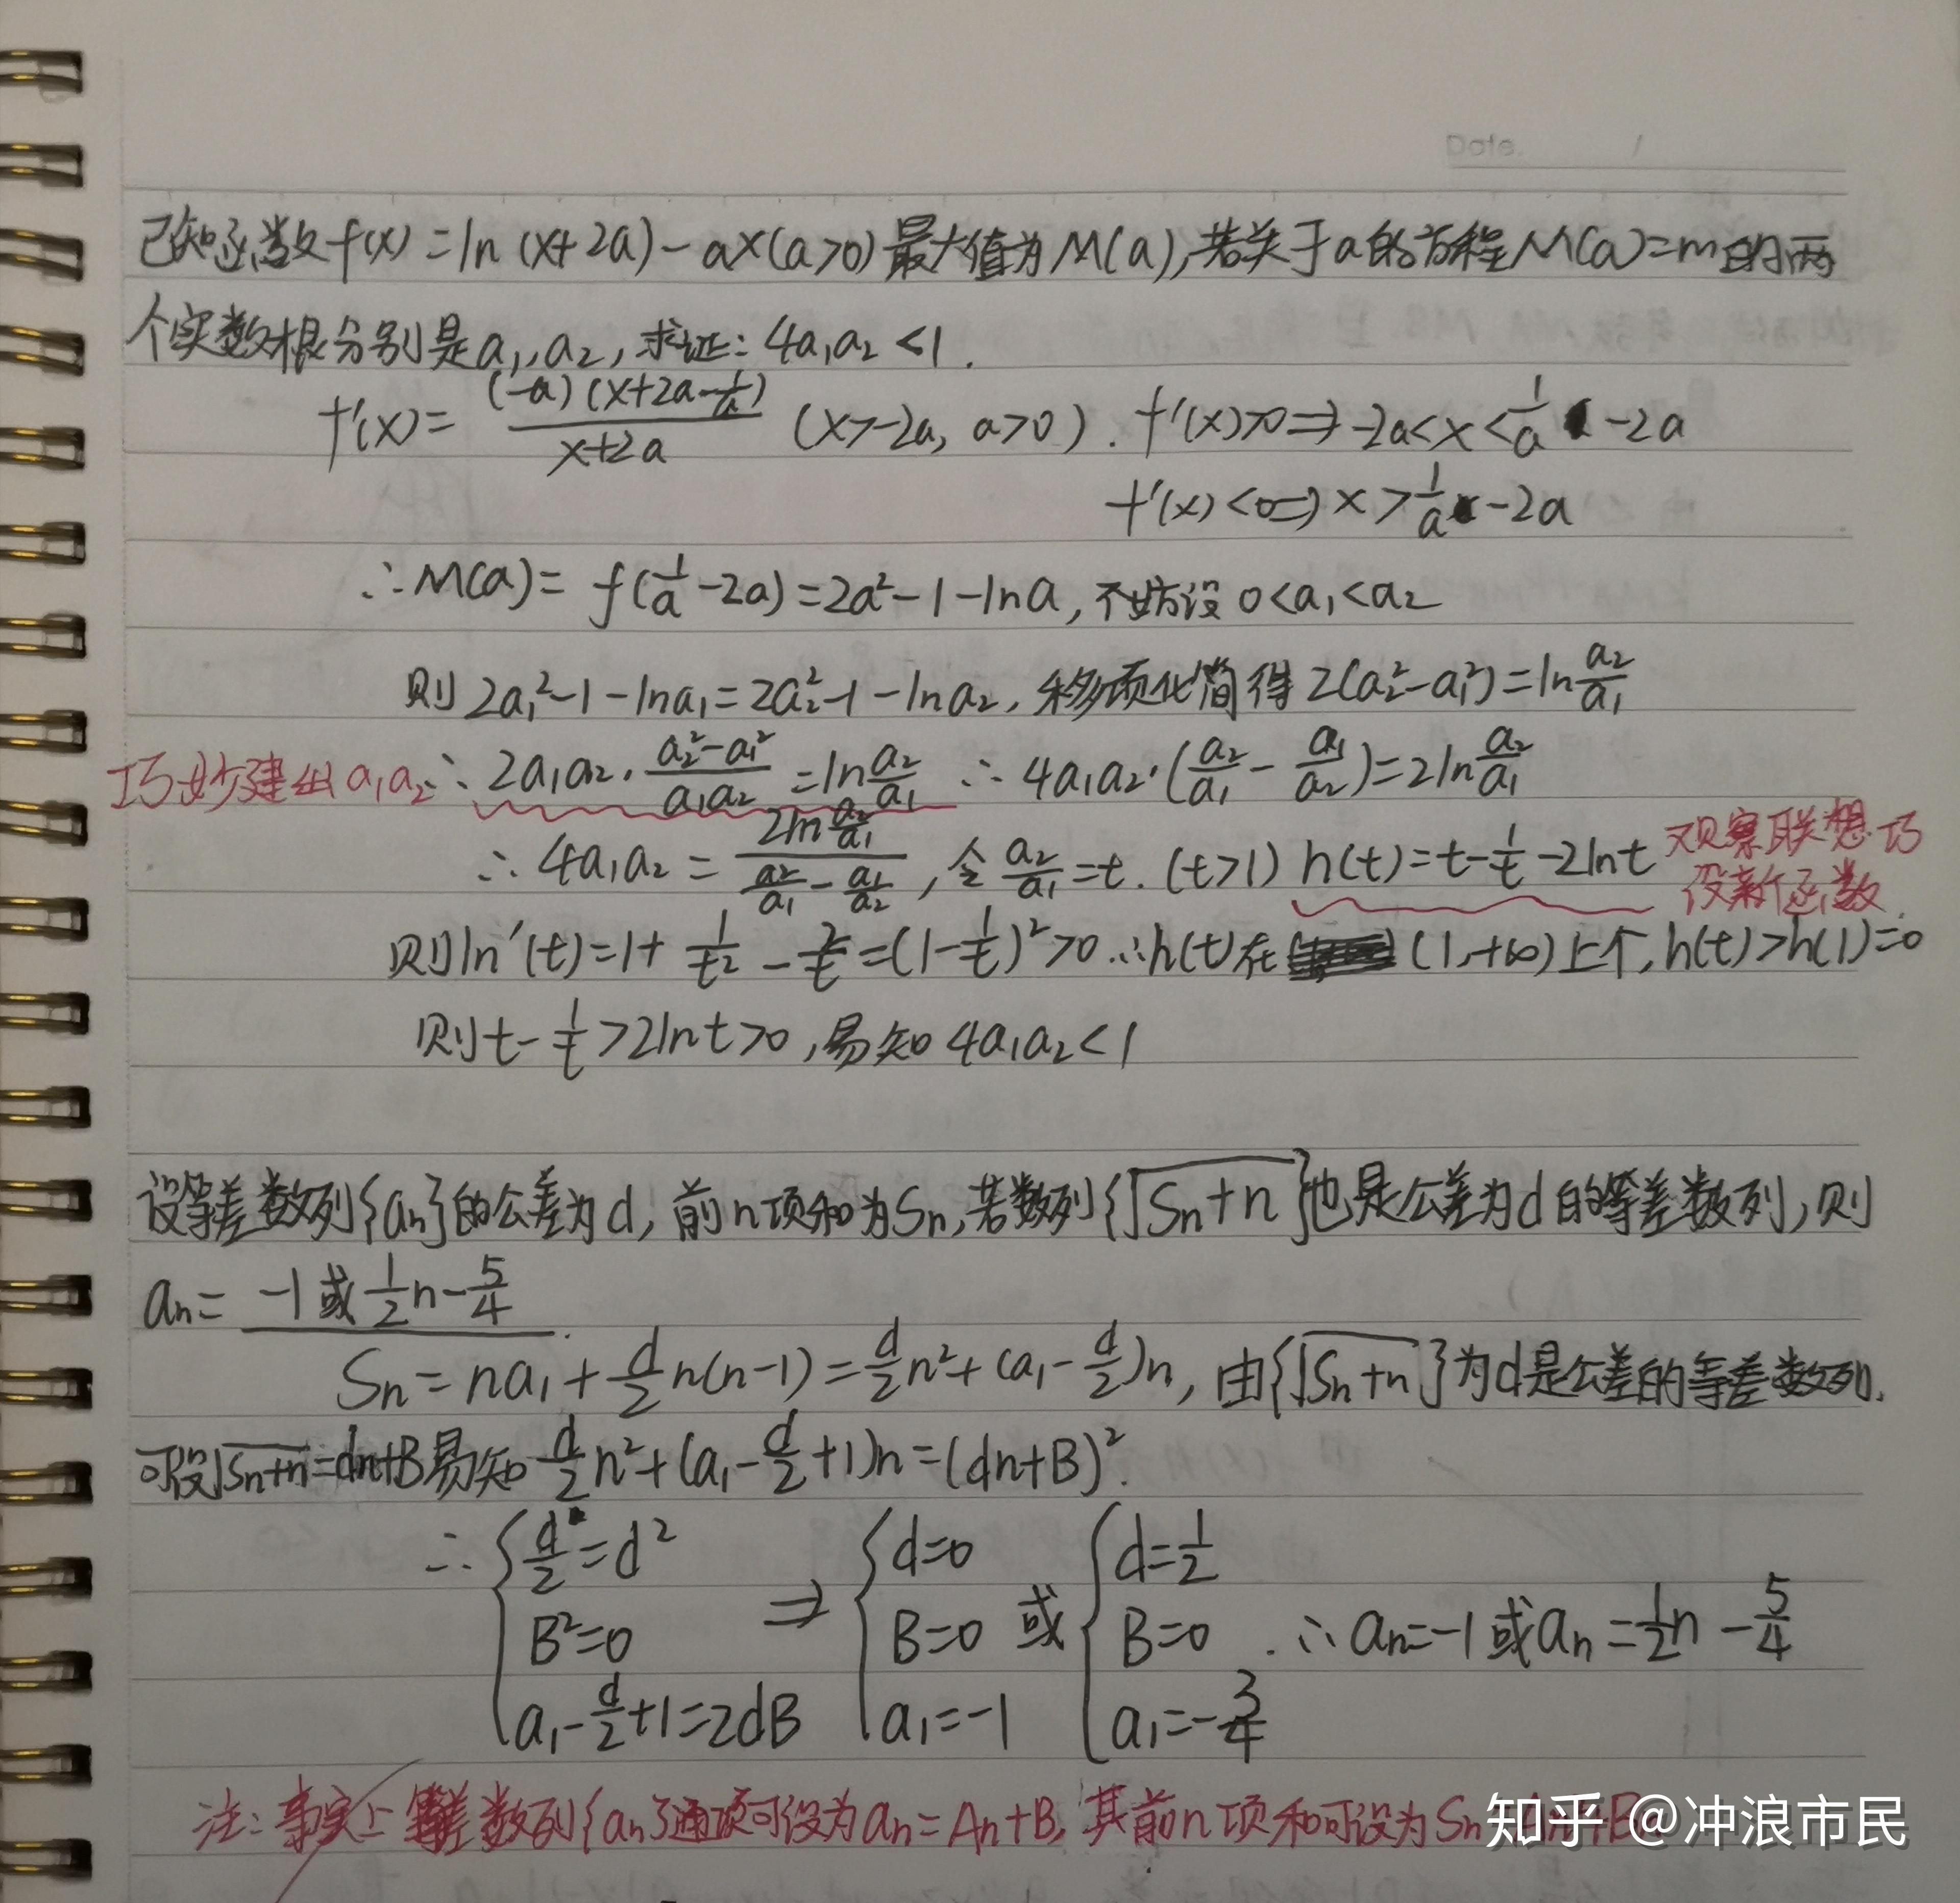 Date. /
已知函数f(x)=ln(x+2a)-ax(a>0)最大值为M(a),若关于a的方程M(a)=m的两
个实数根分别是a₁,a₂,求证:4a₁a₂<1.
f'(x)=\frac{(-a)(x+2a-\frac{1}{a})}{x+2a} (x>-2a, a>0). f'(x)>0⇒-2a<x<\frac{1}{a}-2a
f'(x)<0⇒x>\frac{1}{a}-2a
∴M(a)=f(\frac{1}{a}-2a)=2a²-1-lna,不妨设0<a₁<a₂
则2a₁²-1-lna₁=2a₂²-1-lna₂,移项化简得2(a₂²-a₁²)=ln\frac{a₂}{a₁}
巧妙建出a₁a₂ ∴2a₁a₂·\frac{a₂²-a₁²}{a₁a₂}=ln\frac{a₂}{a₁} ∴4a₁a₂·(\frac{a₂}{a₁}-\frac{a₁}{a₂})=2ln\frac{a₂}{a₁}
∴4a₁a₂=\frac{2ln\frac{a₂}{a₁}}{\frac{a₂}{a₁}-\frac{a₁}{a₂}},令\frac{a₂}{a₁}=t.(t>1) h(t)=t-\frac{1}{t}-2lnt 观察联想.巧
设新函数.
则h'(t)=1+\frac{1}{t²}-\frac{2}{t}=(1-\frac{1}{t})²>0∴h(t)在(1,+∞)上↑,h(t)>h(1)=0
则t-\frac{1}{t}>2lnt>0,易知4a₁a₂<1
设等差数列{aₙ}的公差为d,前n项和为Sₙ,若数列{\sqrt{Sₙ+n}}也是公差为d的等差数列,则
aₙ=-1或\frac{1}{2}n-\frac{5}{4}.
Sₙ=na₁+\frac{d}{2}n(n-1)=\frac{d}{2}n²+(a₁-\frac{d}{2})n,由{\sqrt{Sₙ+n}}为d是公差的等差数列.
可设\sqrt{Sₙ+n}=dn+B易知\frac{d}{2}n²+(a₁-\frac{d}{2}+1)n=(dn+B)².
∴{\frac{d}{2}=d² {d=0 {d=\frac{1}{2}
B²=0 ⇒ B=0 或 B=0 .∴aₙ=-1或aₙ=\frac{1}{2}n-\frac{5}{4}
a₁-\frac{d}{2}+1=2dB a₁=-1 a₁=-\frac{3}{4}
注:事实上等差数列{aₙ}通项可设为aₙ=An+B,其前n项和可设为Sₙ
知乎 @冲浪市民